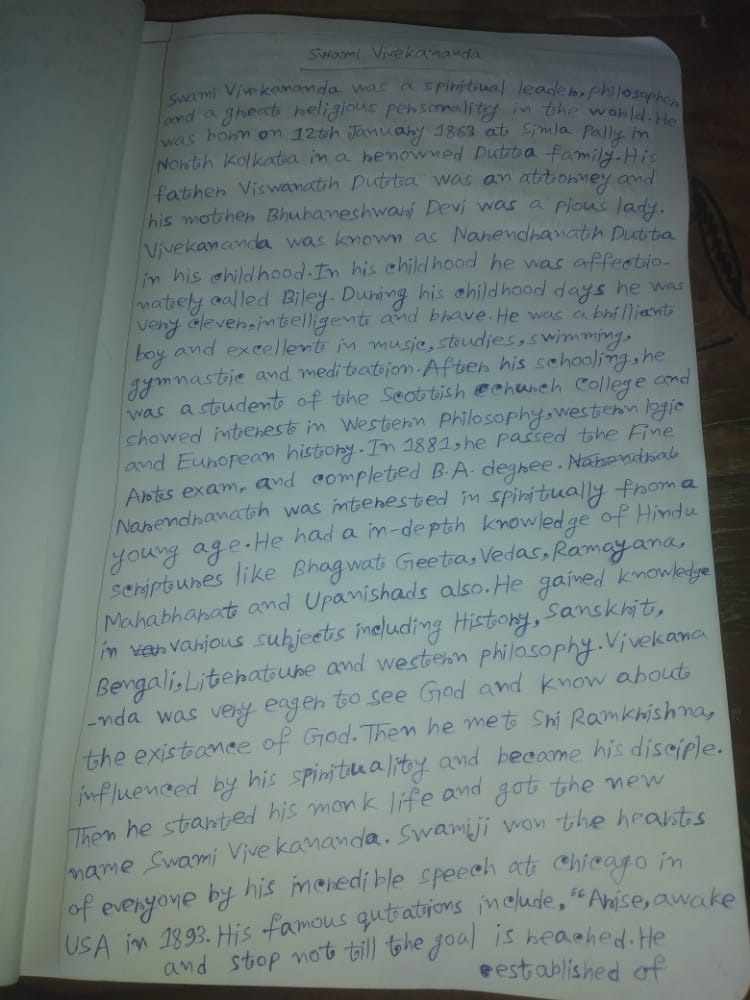 Swami Vivekananda
Swami Vivekananda was a spiritual leader, philosopher
and a great religious personality in the world. He
was born on 12th January 1863 at Simla Pally in
North Kolkata in a renowned Dutta family. His
father Viswanath Dutta was an attorney and
his mother Bhubaneshwari Devi was a pious lady.
Vivekananda was known as Narendranath Dutta
in his childhood. In his childhood he was affectio-
nately called Biley. During his childhood days he was
very clever, intelligent and brave. He was a brilliant
boy and excellent in music, studies, swimming,
gymnastic and meditation. After his schooling, he
was a student of the Scottish church College and
showed interest in Western Philosophy, western logic
and European history. In 1881, he passed the Fine
Arts exam, and completed B.A. degree.
Narendranath was interested in spiritually from a
young age. He had a in-depth knowledge of Hindu
scriptures like Bhagwat Geeta, Vedas, Ramayana,
Mahabharat and Upanishads also. He gained knowledge
in various subjects including History, Sanskrit,
Bengali, Literature and western philosophy. Vivekana
-nda was very eager to see God and know about
the existance of God. Then he met Sri Ramkrishna,
influenced by his spirituality and became his disciple.
Then he started his monk life and got the new
name Swami Vivekananda. Swamiji won the hearts
of everyone by his incredible speech at Chicago in
USA in 1893. His famous qutations include, "Arise, awake
and stop not till the goal is reached. He
established of